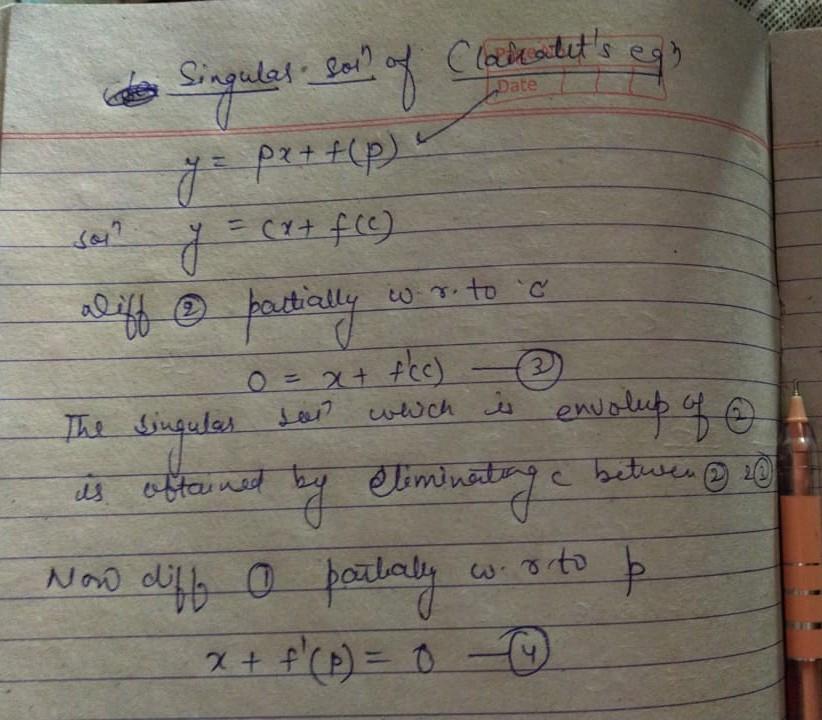 Singular solⁿ of Clairaut's eqⁿ
Date
y = px + f(p)
solⁿ y = cx + f(c)
Diff ② partially w.r.to c
0 = x + f'(c) — ③
The singular solⁿ which is envolup of ②
is obtained by eliminating c between ② & ③
Now diff ① partialy w.r.to p
x + f'(p) = 0 — ④